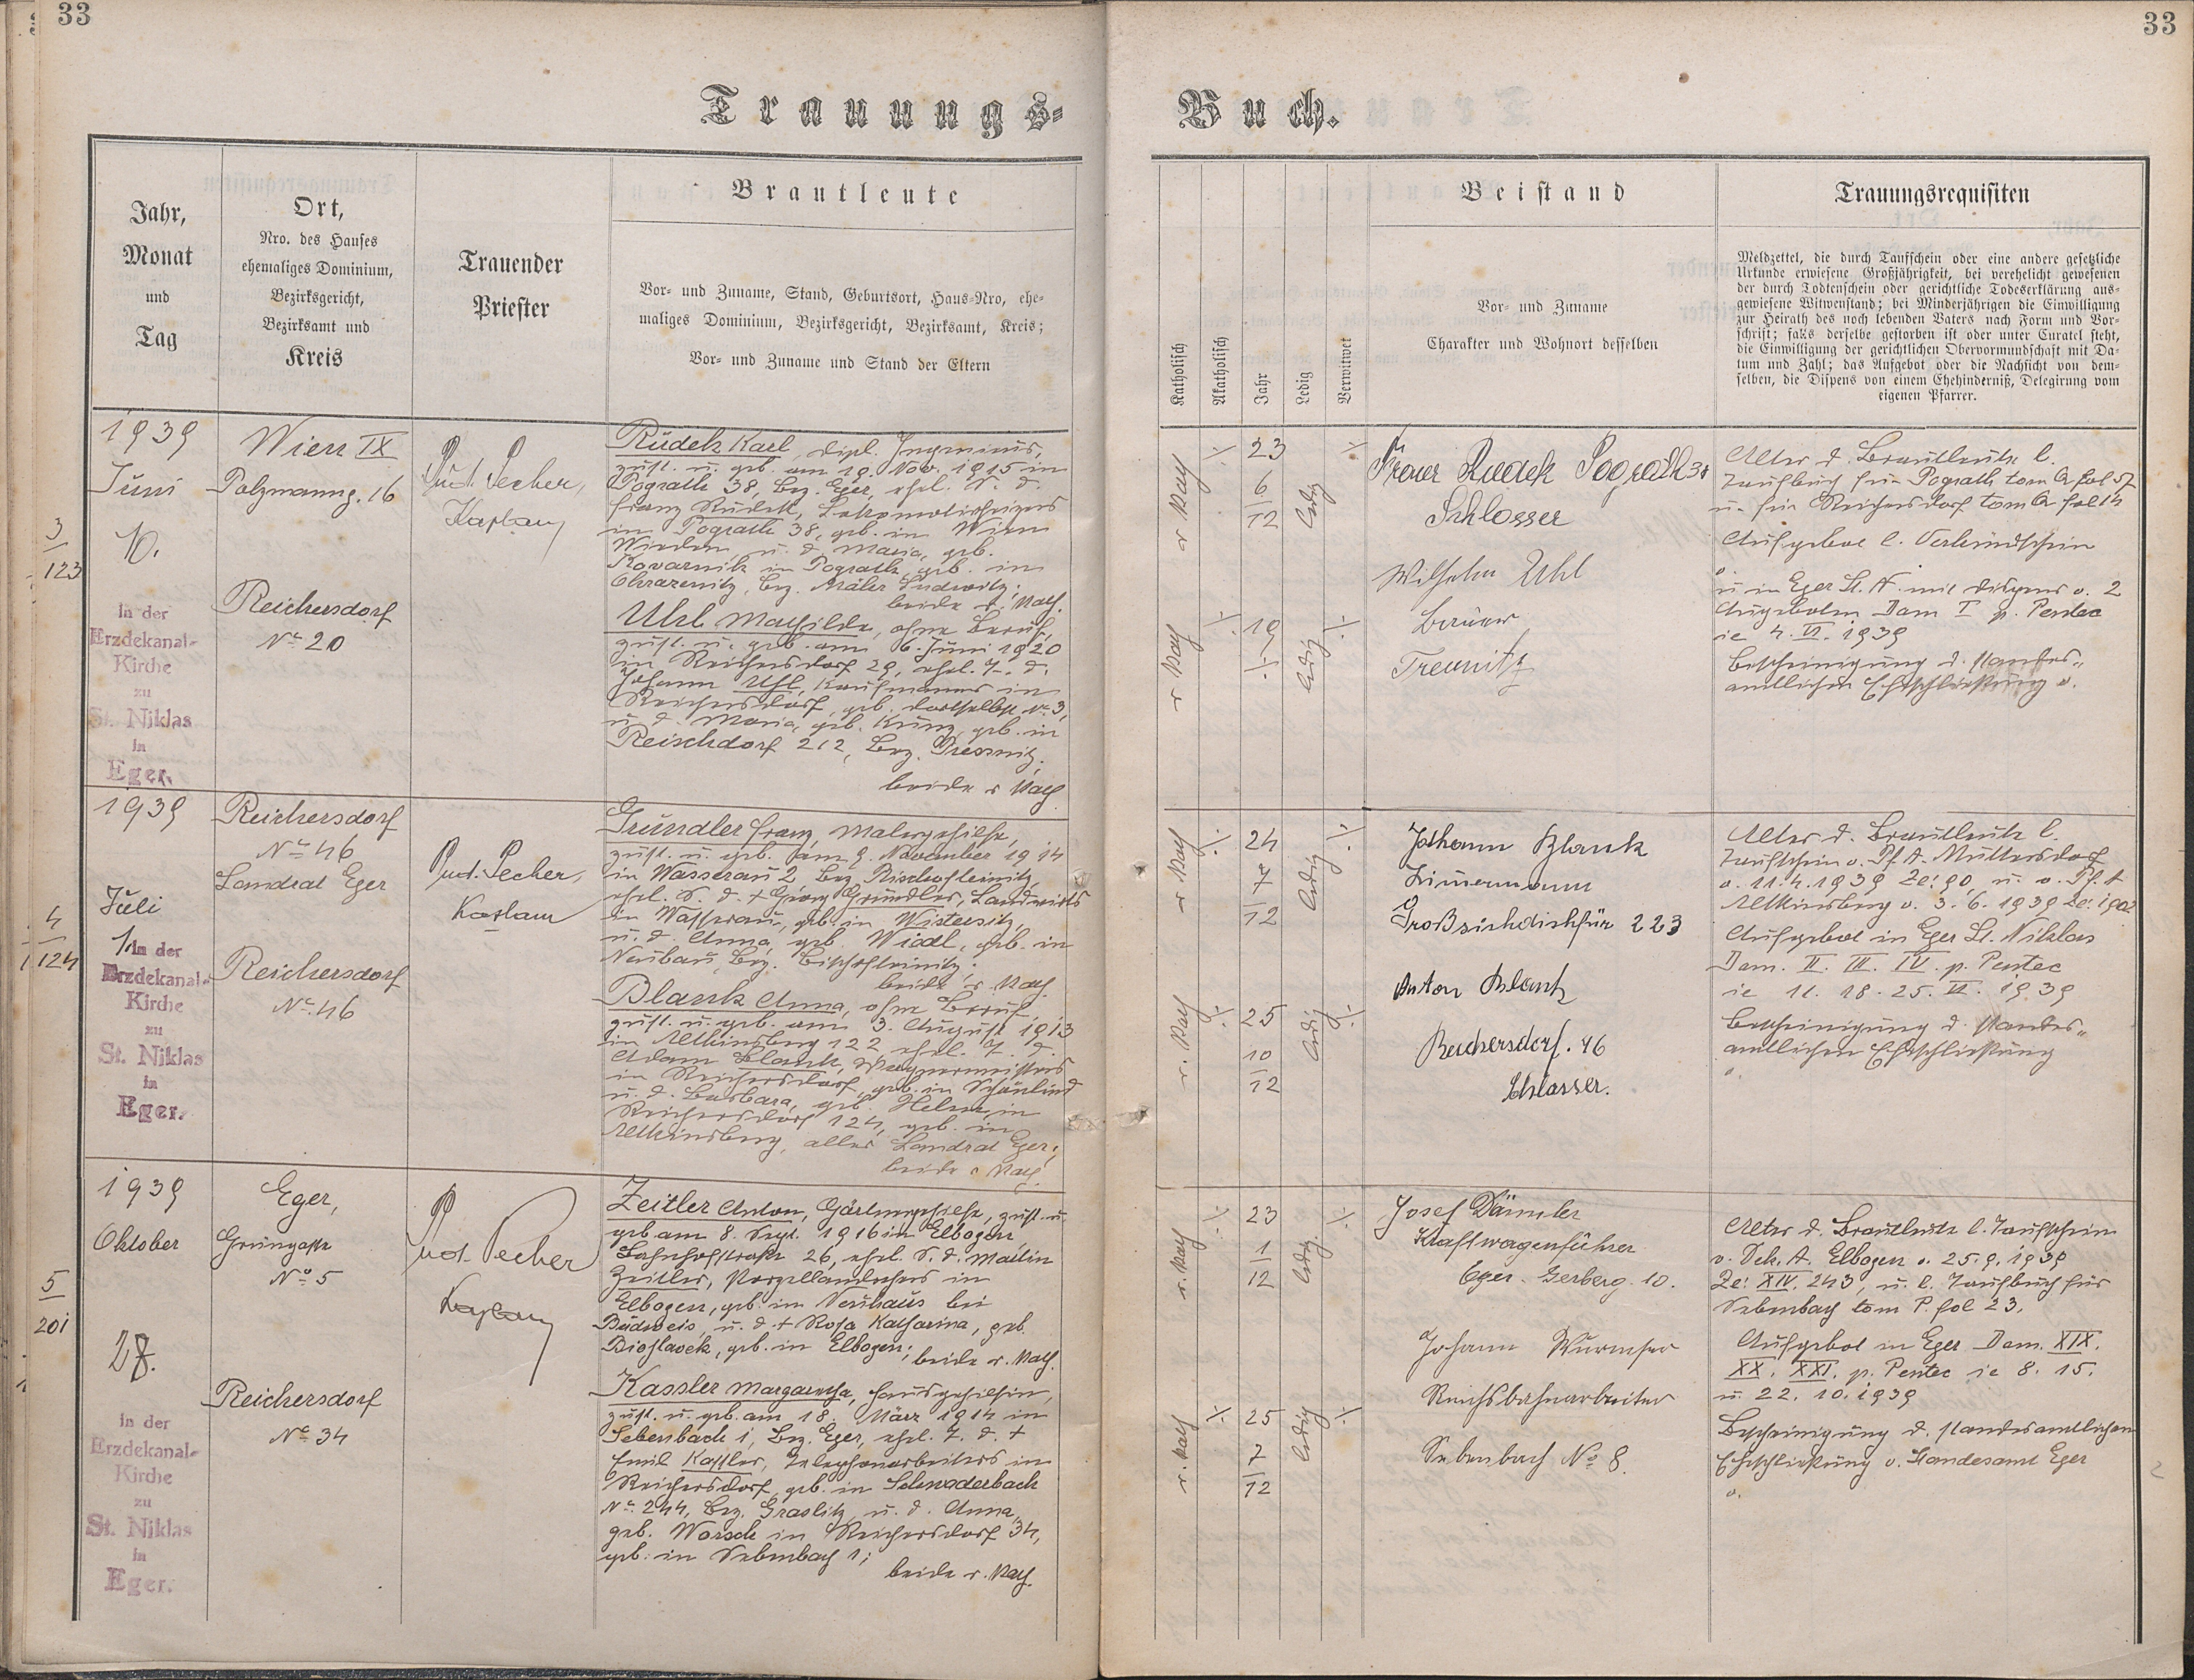 33
33
Trauungs-
Buch.
Jahr,
Monat
und
Tag
Ort,
Nro. des Hauses
ehemaliges Dominium,
Bezirksgericht,
Bezirksamt und
Kreis
Trauender
Priester
Brautleute
Vor- und Zuname, Stand, Geburtsort, Haus-Nro, ehe-
maliges Dominium, Bezirksgericht, Bezirksamt, Kreis;
Vor- und Zuname und Stand der Eltern
Katholisch
Akatholisch
Jahr
Ledig
Verwitwet
Beistand
Vor- und Zuname
Charakter und Wohnort desselben
Trauungsrequisiten
Meldzettel, die durch Taufschein oder eine andere gesetzliche
Urkunde erwiesene Großjährigkeit, bei verehelicht gewesenen
der durch Todtenschein oder gerichtliche Todeserklärung aus-
gewiesene Witwenstand; bei Minderjährigen die Einwilligung
zur Heirath des noch lebenden Vaters nach Form und Vor-
schrift; falls derselbe gestorben ist oder unter Curatel steht,
die Einwilligung der gerichtlichen Obervormundschaft mit Da-
tum und Zahl; das Aufgebot oder die Nachsicht von dem-
selben, die Dispens von einem Ehehinderniß, Delegirung vom
eigenen Pfarrer.
3
123
1939
Juni
10.
In der
Erzdekanal-
Kirche
zu
St. Niklas
in
Eger.
Wien IX
Polzmanng. 16
Reichersdorf
No 20
Rud. Pecher,
Kaplan
Rudek Karl, Dipl. Ingenieur,
zust. u. geb. am 19. Nov. 1915 in
Pograth 38, Bez. Eger, ehel. S. d.
Franz Rudek, Lokomotivheizers
in Pograth 38, geb. in Wien
Wieden u. d. Maria, geb.
Kovarnik in Pograth, geb. in
beide r. Kath.
Uhl Mathilde, ohne Beruf,
zust. u. geb. am 6. Juni 1920
in Reichersdorf 29, ehel. T. d.
Johann Uhl, Kaufmanns in
Reichersdorf, geb. dortselbst No 3,
u. d. Maria, geb. Kunz, geb. in
Reischdorf 212, Bez. Pressnitz;
beide r. Kath
r Kath
23
6
12
ledig
r Kath
19
ledig
Rudek Pograth 38
Schlosser
Wilhelm Uhl
Bauer
Treunitz
Alter d. Brautleute l.
Taufbuch für Pograth tom Q fol 57
u. für Reichersdorf tom Q fol 14
Aufgebot l. Verkündschein
u in Eger St. N. mit Dispens v. 2
Aufgeboten Dom I p. Pentec
ie 4. VI. 1939
Bescheinigung d. standes-
amtlichen Eheschließung v.
4
124
1939
Juli
1.
In der
Erzdekanal-
Kirche
zu
St. Niklas
in
Eger.
Reichersdorf
No 46
Landrat Eger
Reichersdorf
No. 46
Rud. Pecher,
Kaplan
Gründler Franz, Malergehilfe,
zust. u. geb. am 9. November 1914
in Wasserau 2 Bez. Bischofteinitz,
ehel. S. d. + Georg Gründler, Landwirts
in Wasserau, geb. in Wistersitz,
u. d. Anna, geb. Wiedl, geb. in
Neubau, Bez. Bischofteinitz;
beide r. Kath.
Blank Anna, ohne Beruf,
zust. u. geb. am 3. August 1913
in Altkinsberg 122 ehel. T. d.
Adam Blank, Wagnermeisters
in Reichersdorf, geb. in Schönlind
u. d. Barbara, geb. Helm, in
Reichersdorf 124, geb. in
Altkinsberg, alles Landrat Eger;
beide r Kath.
r Kath
24
7
12
ledig
r. Kath
25
10
12
ledig
Johann Blank
Zimermann
Großsichdichfür 223
Anton Blank
Reichersdorf. 46
Schlosser.
Alter d. Brautleute l.
Taufschein v. Pf. A. Muttersdorf
v. 11. 4. 1939 Ze: 90, u. v. Pf. A
Altkinsberg v. 3. 6. 1939 Ze: 1902
Aufgebot in Eger St. Niklas
Dom. II. III. IV. p. Pentec
ie 11. 18. 25. VI. 1939
Bescheinigung d. standes-
amtlichen Eheschließung
v.
5
201
1939
Oktober
28.
In der
Erzdekanal-
Kirche
zu
St. Niklas
in
Eger.
Eger,
Grüngasse
No 5
Reichersdorf
No 34
Rud. Pecher
Kaplan
Zeitler Anton, Gärtnergehilfe, zust. u.
geb am 8. Sept. 1916 in Elbogen,
Bahnhofstraße 26, ehel. S. d. Martin
Zeitler, Porzellandrehers in
Elbogen, geb. in Neuhaus bei
Budweis u. d. + Rosa Katharina, geb.
Bioslavek, geb. in Elbogen; beide r. Kath.
Kassler Margaretha, Hausgehilfin,
zust. u. geb. am 18. März 1914 in
Sebenbach 1, Bez. Eger, ehel. T. d. +
Emil Kassler, Telephonarbeiters in
Reichersdorf, geb. in Schwaderbach
No. 244, Bez. Graslitz, u. d. Anna,
geb. Worsch in Reichersdorf 34,
geb. in Sebenbach 1;
beide r. Kath.
r. Kath
23
1
12
ledig
r. Kath
25
7
12
ledig
Josef Dämmler
Kraftwagenführer
Eger. Gerberg. 10.
Johann Wurmser
Reichsbahnarbeiter
Sebenbach No 8.
Alter d. Brautleute l. Taufschein
v. Dek. A. Elbogen v. 25. 9. 1939
Ze: XIV. 243, u. l. Taufbuch für
Sebenbach tom P. fol 23.
Aufgebot in Eger Dom. XIX.
XX. XXI. p. Pentec ie 8. 15.
u. 22. 10. 1939
Bescheinigung d. standesamtlichen
Eheschließung v. Standesamt Eger
v.